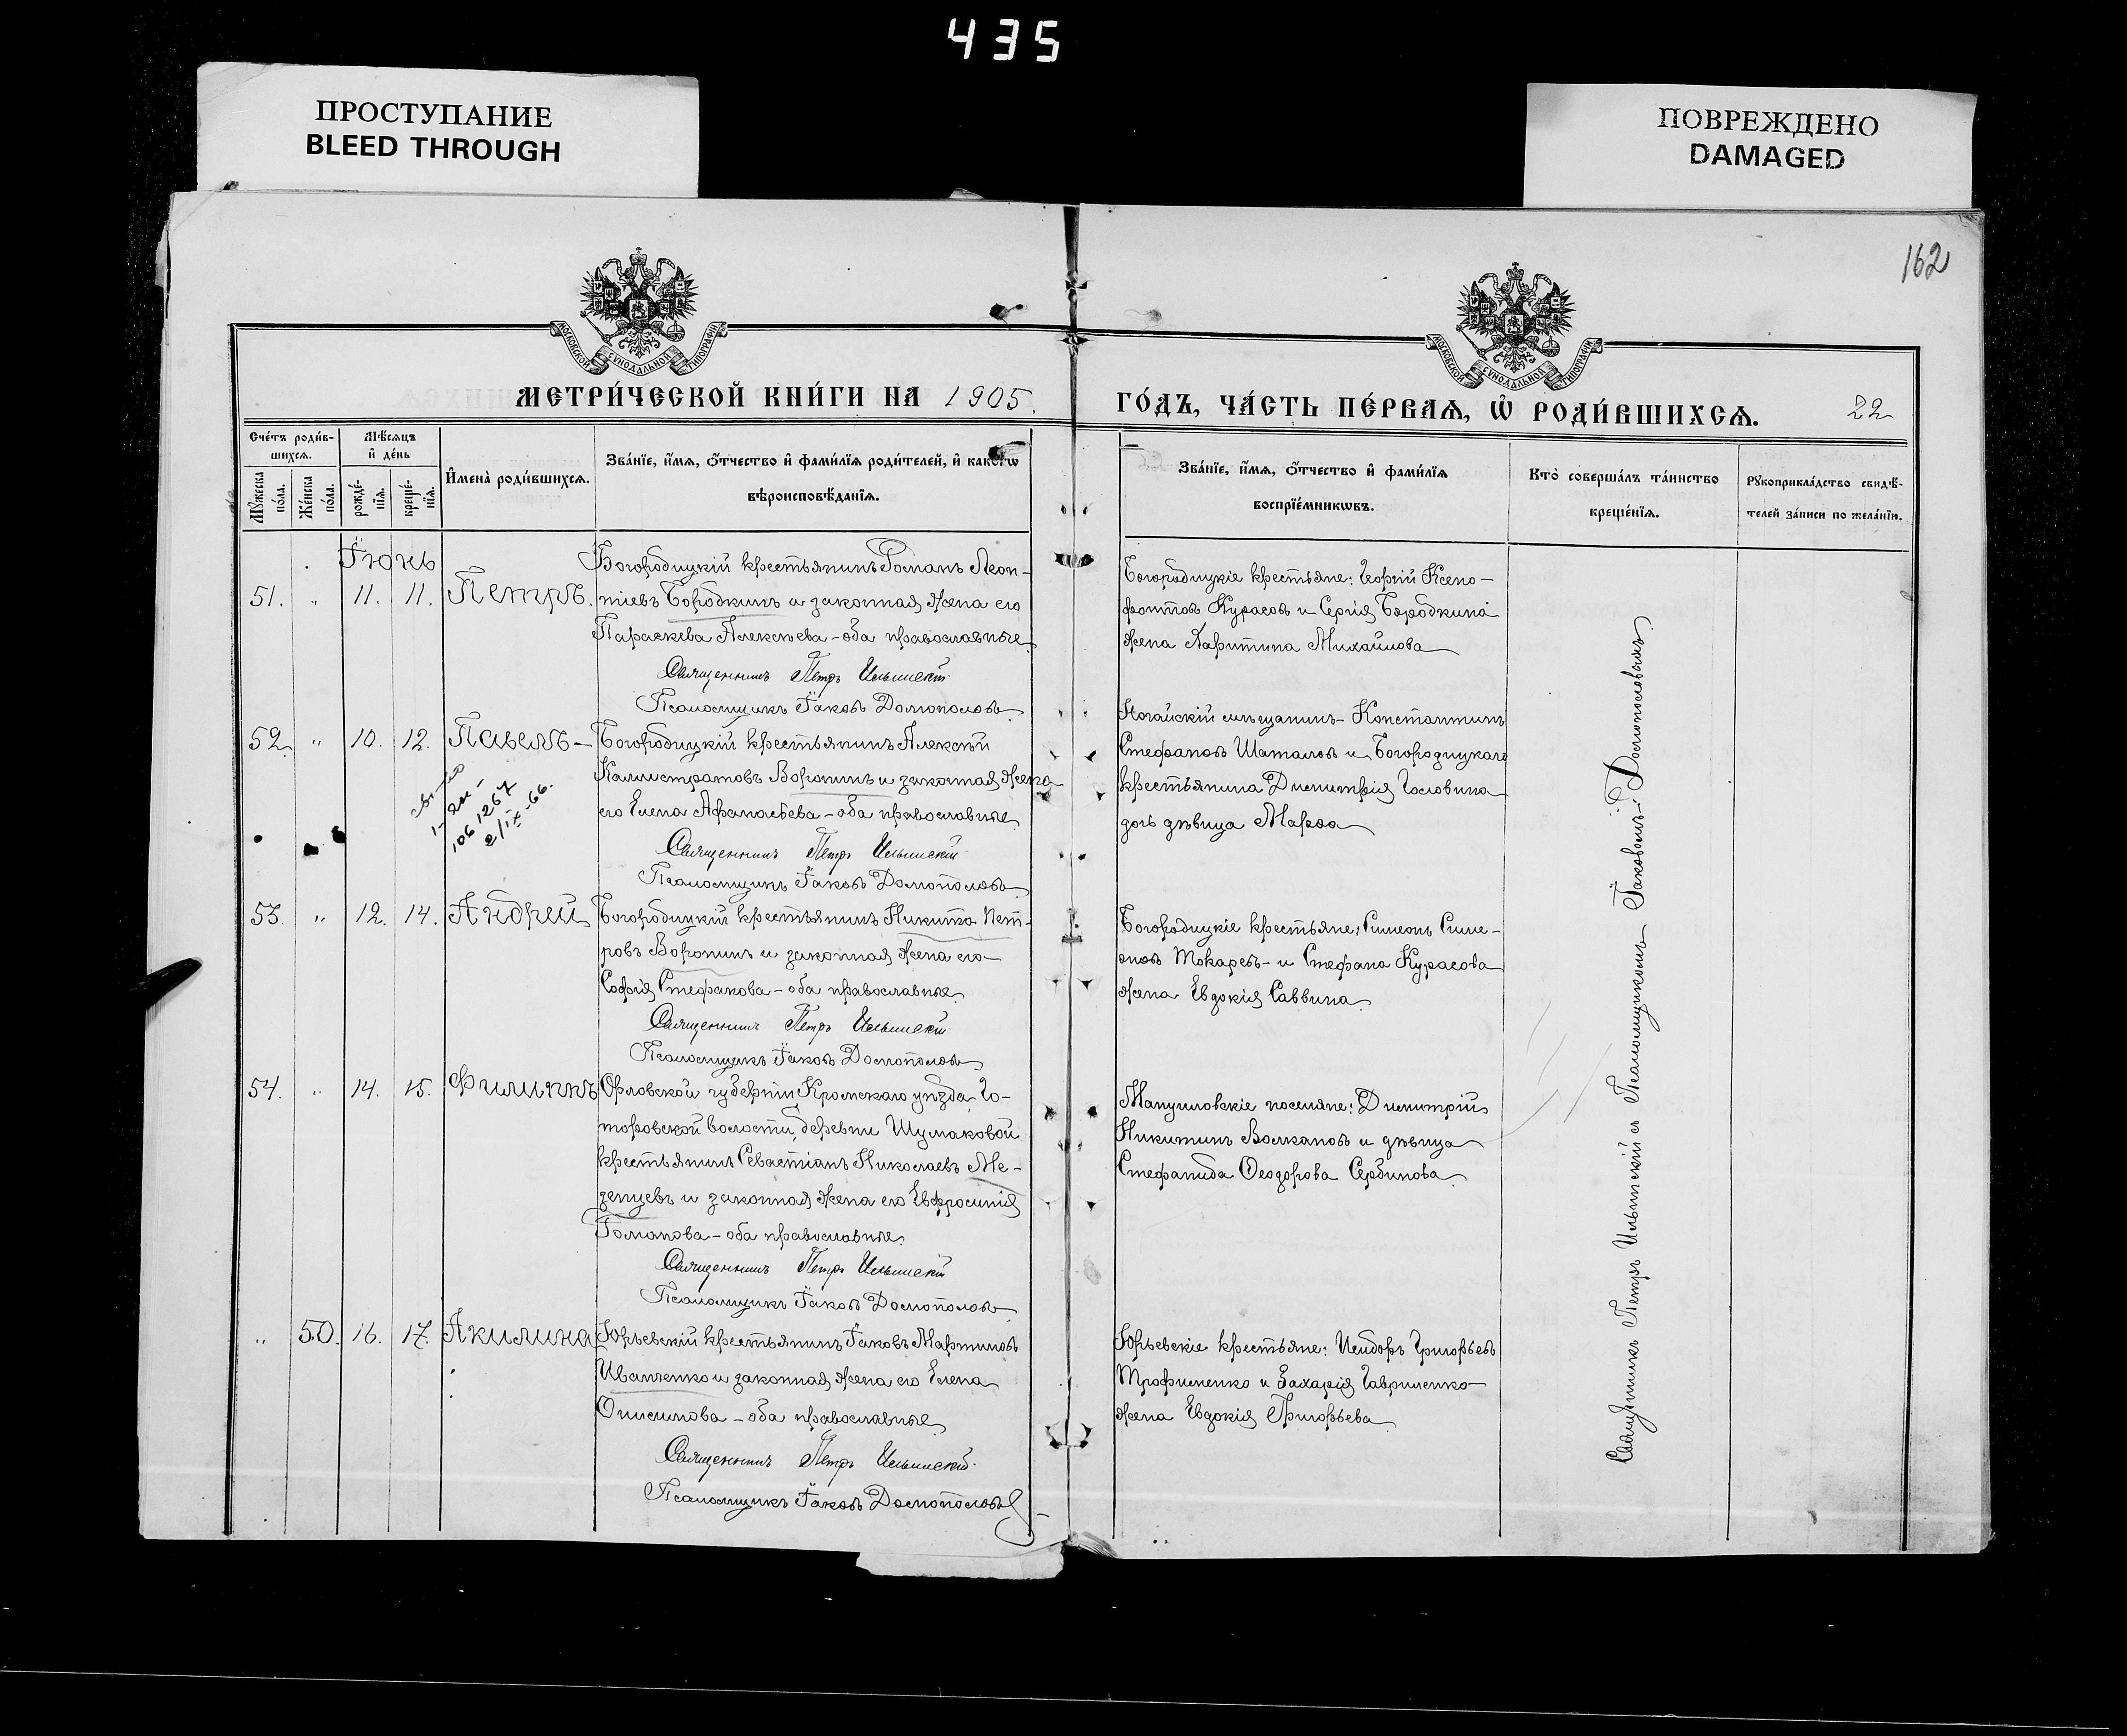 435
ПРОСТУПАНИЕ
BLEED THROUGH
ПОВРЕЖДЕНО
DAMAGED
162
МОСКОВСКОЙ СѴНОДАЛЬНОЙ ТИПОГРАФІИ
МОСКОВСКОЙ СѴНОДАЛЬНОЙ ТИПОГРАФІИ
МЕТРИ́ЧЕСКОЙ КНИ́ГИ НА 1905.
ГО́ДЪ, ЧА́СТЬ ПЕ́РВАѦ, Ѽ РОДИ́ВШИХСѦ.
22
Сче́тъ роди́в-
шихсѧ.
Мꙋ́жеска по́ла.
Же́нска по́ла.
Мѣ́сѧцъ
и҆ де́нь
рожде́-
нїѧ.
креще́-
нїѧ.
И҆мена̀ роди́вшихсѧ.
Зва́нїе, и҆́мѧ, ѻ҆́тчество и҆ фами́лїѧ роди́телей, и҆ како́гѡ
вѣроисповѣ́данїѧ.
Зва́нїе, и҆́мѧ, ѻ҆́тчество и҆ фами́лїѧ
воспрїе́мникѡвъ.
Кто̀ соверша́лъ та́инство
креще́нїѧ.
Рꙋкоприкла́дство свидѣ́-
телей за́писи по жела́нїю.
Іюнь
51. " 11. 11. Петръ.
Богородицкій крестьянинъ Романъ Леон-
тіевъ Бородкинъ и законная жена его
Параскева Алексѣева - оба православные
Священникъ Петръ Ильинскій
Псаломщикъ Іаковъ Домополовъ
Богородицкіе крестьяне: Георгій Ксено-
фонтовъ Курасовъ и Сергія Бородкина
жена Харитина Михайлова
52. " 10. 12. Павелъ -
Богородицкій крестьянинъ Алексѣй
Каллистратовъ Воронинъ и законная жена
его Елена Афанасьева - оба православные
Священникъ Петръ Ильинскій
Псаломщикъ Іаковъ Домополовъ
1061267
2/IX-66.
Ногайскій мѣщанинъ - Константинъ
Стефановъ Шаталовъ и Богородицкаго
крестьянина Димитрія Головина
дочь дѣвица Марѳа
53. " 12. 14. Андрей
Богородицкій крестьянинъ Никита Пет-
ровъ Воронинъ и законная жена его
Софія Стефанова - оба православные
Священникъ Петръ Ильинскій
Псаломщикъ Іаковъ Домополовъ
Богородицкіе крестьяне: Симеонъ Симе-
оновъ Токаревъ - и Стефана Курасова
жена Евдокія Саввина
54. " 14. 15. Филиппъ
Орловской губерніи Кромскаго уѣзда, Го-
торовской волости, деревни Шумаковой
крестьянинъ Севастіанъ Николаевъ Ме-
зенцевъ и законная жена его Евфросинія
Романова - оба православные.
Священникъ Петръ Ильинскій
Псаломщикъ Іаковъ Домополовъ
Мануиловскіе поселяне: Димитрій
Никитинъ Волкановъ и дѣвица
Стефанида Ѳеодорова Сербинова
" 50. 16. 17. Акилина
Юрьевскій крестьянинъ Іаковъ Мартиновъ
Иванченко и законная жена его Елена
Онисимова - оба православные
Священникъ Петръ Ильинскій
Псаломщикъ Іаковъ Домополовъ
Юрьевскіе крестьяне: Исидоръ Григорьевъ
Трофименко и Захарія Гавриленко
жена Евдокія Григорьева
Священникъ Петръ Ильинскій съ Псаломщикомъ Іаковомъ Домополовымъ